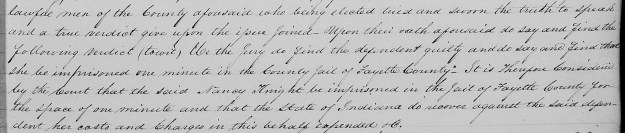 lawful men of the County aforesaid who being elected tried and sworn the truth to speak
and a true verdict give upon the issue Joined – Upon their oath aforesaid do say and find the
following verdict (towit) We the Jury do find the defendent guilty and do say and find that
she be imprisoned one minute in the County Jail of Fayette County" It is Therefore Considered
by the Court that the said Nancy Knight be imprisoned in the Jail of Fayette County for
the space of one minute and that the State of Indiana do recover against the said defen
dent her costs and Charges in this behalf expended &C.